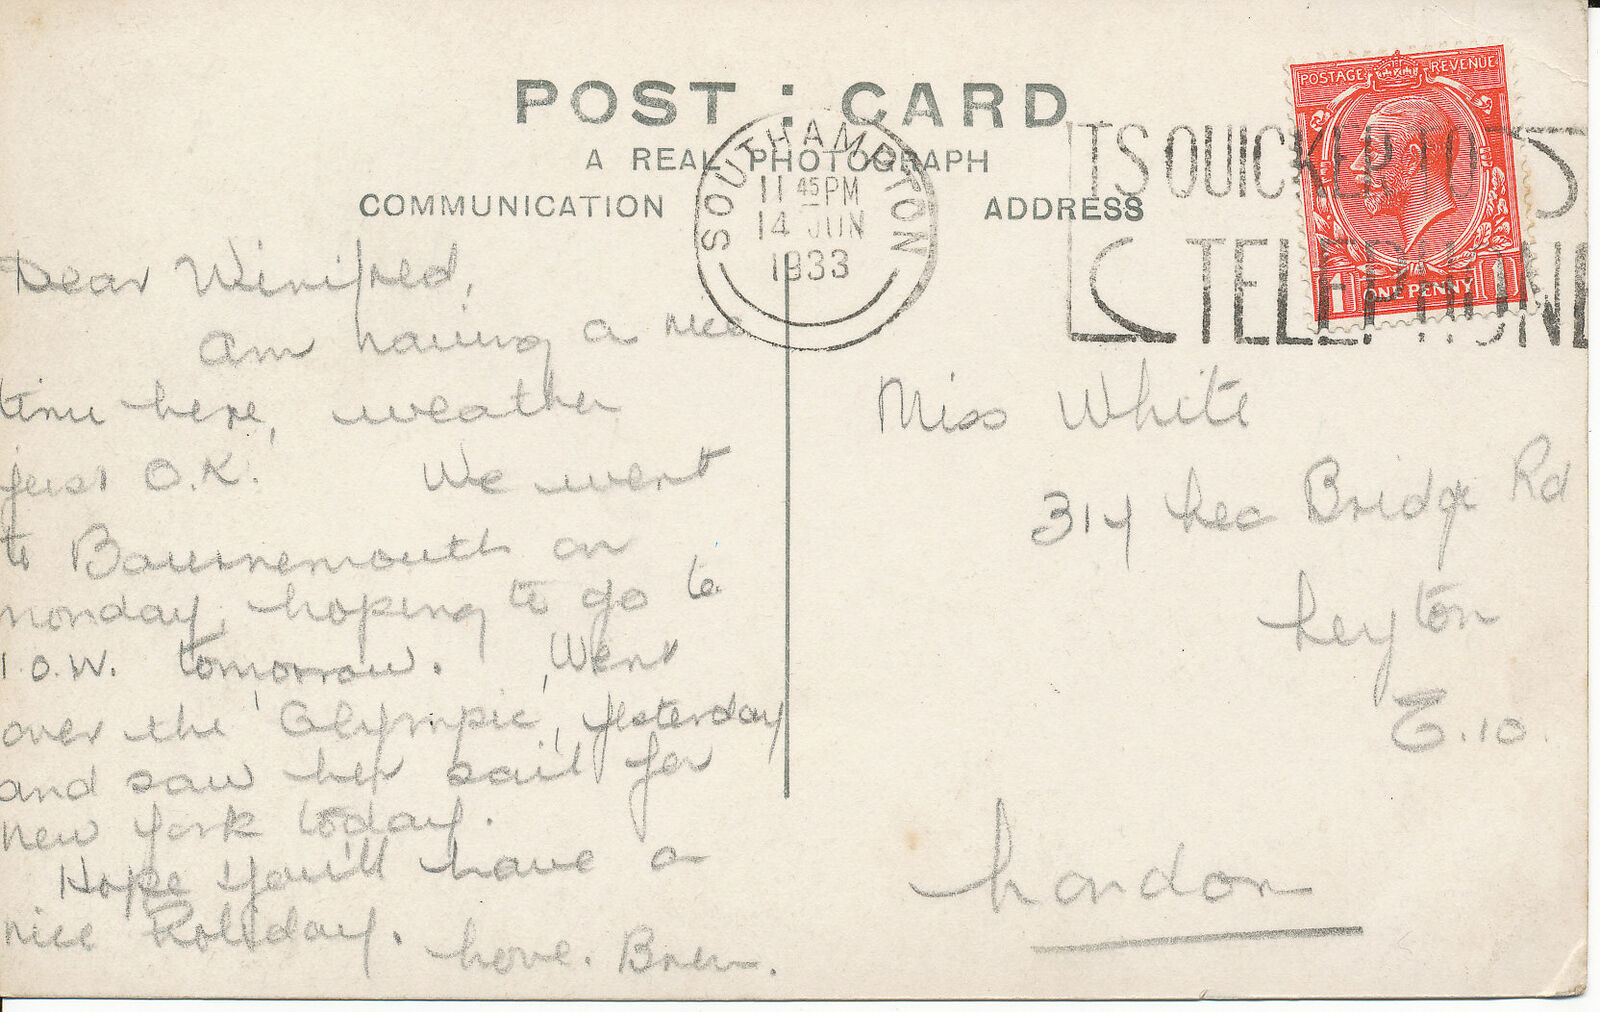 POST : CARD
A REAL PHOTOGRAPH
COMMUNICATION
ADDRESS
SOUTHAMPTON
11 45 PM
14 JUN
1933
ITS QUICKER TO
TELEPHONE
POSTAGE REVENUE
1 ONE PENNY 1
Dear Winifred,
Am having a nice
time here, weather
just O.K. We went
to Bournemouth on
monday, hoping to go to
I.O.W. tomorrow. Went
over the 'Olympic' yesterday
and saw her sail for
new york today.
Hope you'll have a
nice holiday.
Love.
Miss White
314 Lea Bridge Rd
Leyton
E.10.
London